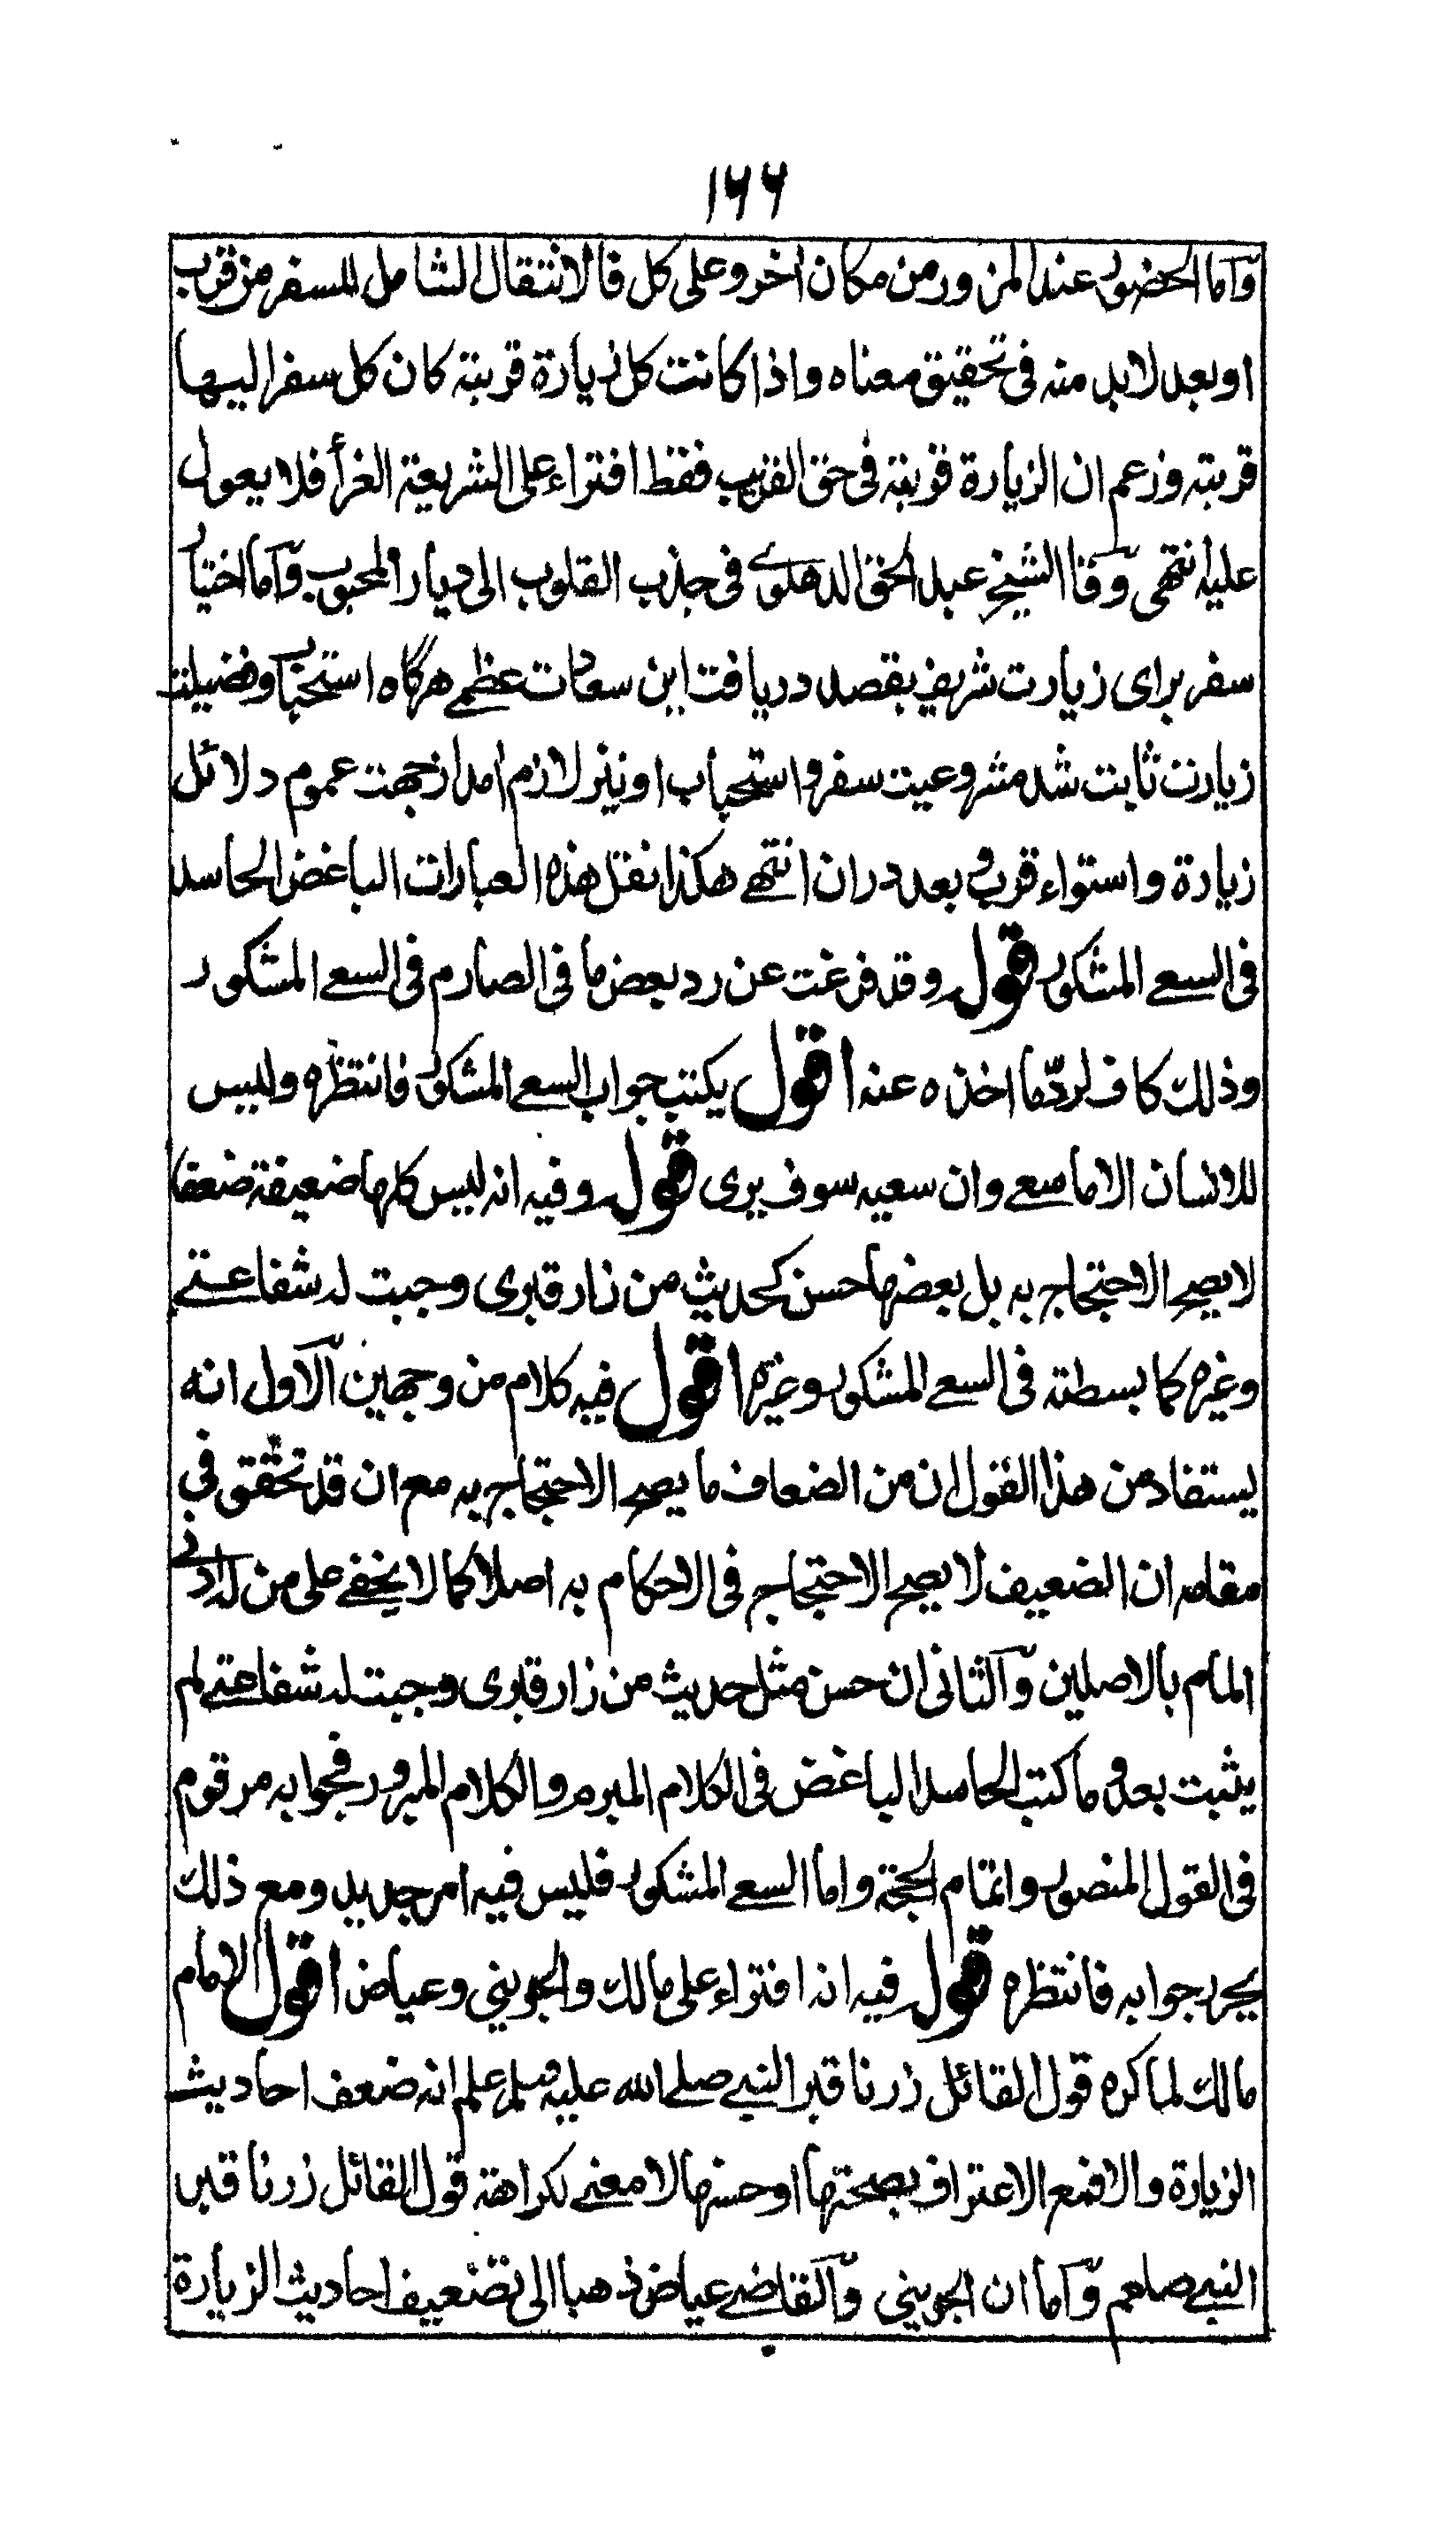 ١٦٦
وآما الحضور عند المزور من مكان اخر وعلى كل فالانتقال الشامل للسفر من قرب
او بعد لابد منه فى تحقيق معناه واذا كانت كل زيارة قربته كان كل سفر اليها
قربته وزعم ان الزيارة قربته فى حق القريب فقط افتراء على الشريعة الغرأ فلا يعول
عليه انتهى وقا الشيخ عبد الحق الدهلوے فى جذب القلوب الى ديار المحبوب وآما اختيار
سفر براى زيارت شريف بقصد دريافت اين سعادت عظمے هرگاه استحباب وفضيلت
زيارت ثابت شد مشروعيت سفر و استحباب او نيز لازم امد از جهت عموم دلائل
زيارة واستواء قرب و بعد دران انتهے هكذا نقل هذه العبارات الباغض الحاسد
فى السعے المشكور قوله وقد فرغت عن رد بعض ما فى الصارم فى السعے المشكور
وذلك كاف لردّ ما اخذه عنه اقول يكتب جواب السعے المشكور فانتظره وليس
للانسان الا ما سعے وان سعيه سوف يرى قوله وفيه انه ليس كلها ضعيفة ضعفا
لا يصح الاحتجاج به بل بعضها حسن كحديث من زار قبرى وجبت له شفاعتے
وغيره كما بسطته فى السعے المشكور وغيره اقول فيه كلام من وجهين آلاول انه
يستفاد من هذا القول ان من الضعاف ما يصح الاحتجاج به مع ان قد تحقق فى
مقامه ان الضعيف لا يصح الاحتجاج فى الاحكام به اصلا كما لا يخفے على من له ادنے
المام بالاصلين وآلثانى ان حسن مثل حديث من زار قبرى وجبت له شفاعتے لم
يثبت بعد و ما كتب الحاسد الباغض فى الكلام المبرم والكلام المبرور فجوابه مرقوم
فى القول المنصور واتمام الحجة واما السعے المشكور فليس فيه امر جديد ومع ذلك
يحرر جوابه فانتظره قوله فيه انه افتراء على مالك والجوينى وعياض اقول الامام
مالك لما كره قول القائل زرنا قبر النبے صلے الله عليه وسلم علم انه ضعف احاديث
الزيارة والا فمع الاعتراف بصحتها او حسنها لا معنے لكراهة قول القائل زرنا قبر
النبے صلعم وآما ان الجوينى وآلقاضے عياض ذهبا الى تضعيف احاديث الزيارة